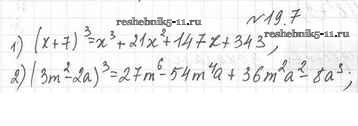 №19.7
reshebnik5-11.ru
1) (x+7)³=x³+21x²+147x+343,
reshebnik5-11.ru
2) (3m²-2a)³=27m⁶-54m⁴a+36m²a²-8a³;